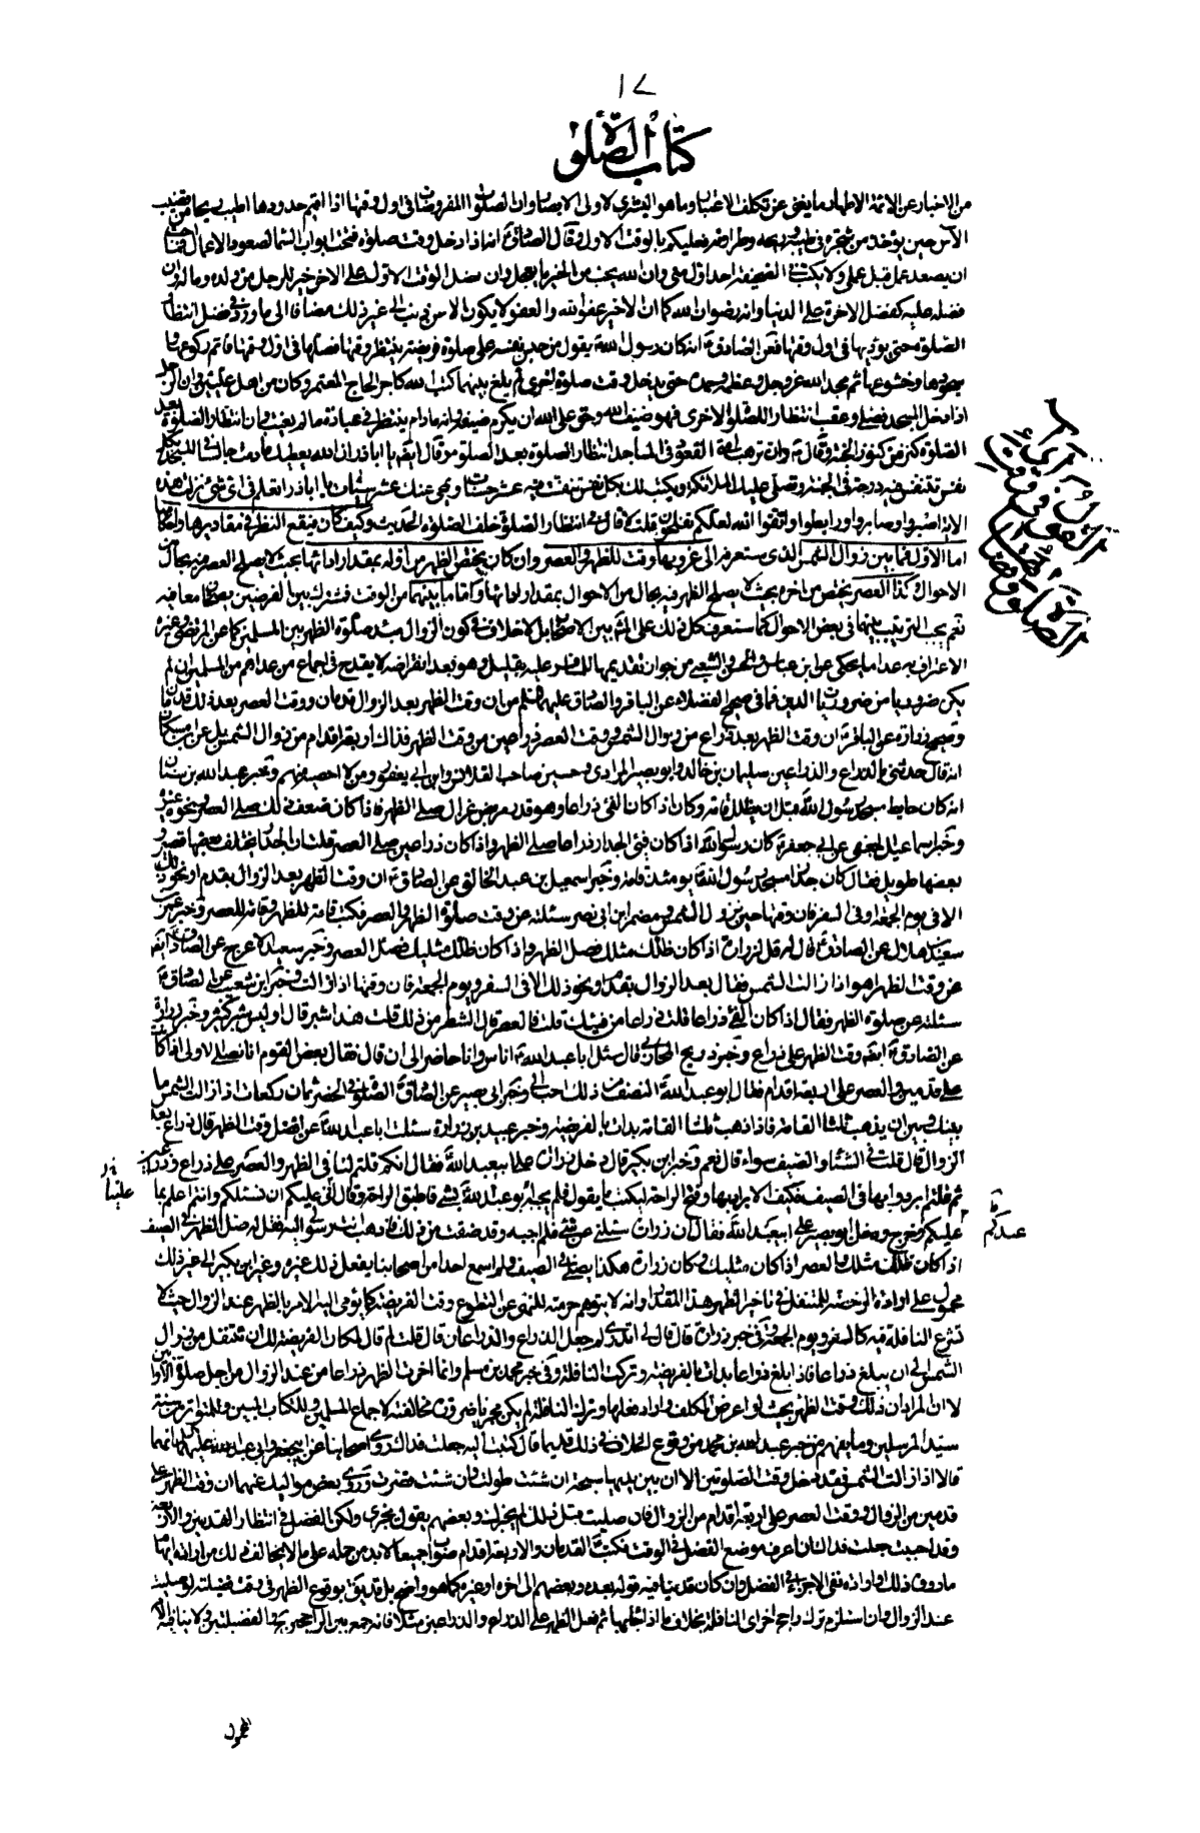 ١٧
كتاب الصلوة
من الاخبار عن الائمة الاطهار ما يغنى عن تكلف الاعتبار وما هو البشرى لاولى الابصار وان الصلوات المفروضات فى اول وقتها اذا اقيم حدودها اطيب ريحا من قضيب
الآس حين يؤخذ من شجره فى طيبه وريحه وطراوته فعليكم بالوقت الاول وقال الصادق انه اذا دخل وقت صلوة فتحت ابواب السماء لصعود الاعمال فما احب
ان يصعد عمل قبل عملى ولا يكتب فى الصحيفة احد اول منى وان الله يحب من الخير ما يعجل وان فضل الوقت الاول على الاخر خير للرجل من ولده وماله وان
فضله عليه كفضل الاخرة على الدنيا وانه رضوان الله كما ان الاخير عفو الله والعفو لا يكون الا من ذنب الى غير ذلك مضافا الى ما ورد فى فضل انتظار
الصلوة حتى يؤتى بها فى اول وقتها فعن الصادق انه كان رسول الله يقول من حبس نفسه على صلوة فريضة ينتظر وقتها فصلاها فى اول وقتها فاتم ركوعها
وسجودها وخشوعها ثم مجد الله عز وجل وعظمه وحمده حتى يدخل وقت صلوة اخرى لم يلغ بينهما كتب الله كاجر الحاج المعتمر وكان من اهل عليين وان الرجل
اذا دخل المسجد فصلى وعقب انتظارا للصلوة الاخرى فهو ضيف الله وحق على الله ان يكرم ضيفه وانه ما دام ينتظر فى عبادة ما لم يحدث وان انتظار الصلوة بعد
الصلوة كنز من كنوز الجنة وقال وان ترهب امتى القعود فى المساجد انتظار الصلوة بعد الصلوة وقال ايضا يا اباذر ان الله يعطيك ما دمت جالسا فى المسجد بكل
نفس تتنفس فيه درجة فى الجنة وتصلى عليك الملائكة ويكتب لك بكل نفس تنفست فيه عشر حسنات ويمحى عنك عشر سيئات يا اباذر اتعلم فى اى شئ نزلت هذه
الاية اصبروا وصابروا ورابطوا واتقوا الله لعلكم تفلحون قلت لا قال فى انتظار الصلوة خلف الصلوة الحديث وكيف كان فيقع النظر فى مقاديرها واحكامها
اما الاول فما بين زوال الشمس الذى ستعرفه الى غروبها وقت للظهر والعصر وان كان يختص الظهر من اوله بمقدار ادائها بحيث لا يصلح العصر فيه بحال من
الاحوال وكذا العصر يختص من اخره بحيث لا يصلح الظهر فيه بحال من الاحوال بمقدار ادائها واما ما بينهما من الوقت فمشترك بين الفرضين يصلحان معا فيه
نعم يجب الترتيب بينهما فى بعض الاحوال كما ستعرف كل ذلك على المشهور بين الاصحاب بل لا خلاف فى كون الزوال مبدء صلوة الظهر بين المسلمين كما عن المرتضى وغيره
الاعتراف به عدا ما يحكى عن ابن عباس والحسن والشعبى من جواز تقديمها للمسافر عليه بقليل وهو بعد انقراضه لا يقدح فى اجماع من عداهم من المسلمين ان لم
يكن ضروريا من ضروريات الدين فما فى صحيح الفضلاء عن الباقر والصادق عليهما السلم من ان وقت الظهر بعد الزوال قدمان ووقت العصر بعد ذلك قدمان
وصحيح زرارة عن الباقر ان وقت الظهر بعد ذراع من زوال الشمس ووقت العصر ذراعين من وقت الظهر فذاك اربعة اقدام من زوال الشمس بل عن ابن مسكان
انه قال حدثنى بالذراع والذراعين سليمان بن خالد وابو بصير المرادى وحسين صاحب القلانس وابن ابى يعفور ومن لا احصيه منهم وخبر عبد الله بن سنان
انه كان حايط مسجد رسول الله قبل ان يظلل قامة وكان اذا كان الفئ ذراعا وهو قدر مربض غزال صلى الظهر فاذا كان ضعف ذلك صلى العصر ونحوه غيره
وخبر اسماعيل الجعفى عن ابى جعفر كان رسول الله اذا كان فئ الجدار ذراعا صلى الظهر واذا كان ذراعين صلى العصر قلت ان الجدار تختلف بعضها قصير و
بعضها طويل فقال كان جدار مسجد رسول الله يومئذ قامة وخبر اسمعيل بن عبد الخالق عن الصادق ان وقت الظهر بعد الزوال بقدم او نحو ذلك
الا فى يوم الجمعة او فى السفر فان وقتها حين تزول الشمس ومضمر ابن ابى نصر سئلته عن وقت صلوة الظهر والعصر فكتب قامة للظهر وقامة للعصر وخبر عمر بن
سعيد بن هلال عن الصادق قال له قل لزرارة اذا كان ظلك مثلك فصل الظهر واذا كان ظلك مثليك فصل العصر وخبر سعيد الاعرج عن الصادق ايضا
عن وقت الظهر اهو اذا زالت الشمس فقال بعد الزوال بقدم او نحو ذلك الا فى السفر ويوم الجمعة فان وقتها اذا زالت وخبر ابن شعيب عن الصادق
سئلته عن صلوة الظهر فقال اذا كان الفئ ذراعا قلت ذراعا من فيئك قلت فالعصر قال الشطر من ذلك قلت هذا شبر قال اوليس شبر كثير وخبر زرارة
عن الصادق ايضا وقت الظهر على ذراع وخبر ذريح المحاربى قال سئل ابا عبد الله اناس وانا حاضر الى ان قال فقال بعض القوم انا نصلى الاولى اذا كانت
على قدمين والعصر على اربعة اقدام فقال ابو عبد الله النصف من ذلك احب الى وخبر ابى بصير عن الصادق الصلوة فى الحضر ثمان ركعات اذا زالت الشمس ما
بينك وبين ان يذهب ثلثا القامة فاذا ذهب ثلثا القامة بدات بالفريضة وخبر عبيد بن زرارة سئلت ابا عبد الله عن افضل وقت الظهر قال ذراع بعد
الزوال قال قلت فى الشتاء والصيف سواء قال نعم وخبر ابن بكير قال دخل زرارة على ابيعبد الله فقال انكم قلتم لنا فى الظهر والعصر على ذراع وذراعين
ثم قلتم ابردوا بها فى الصيف فكيف الابراد بها وفتح الواحه ليكتب ما يقول فلم يجبه ابو عبد الله بشئ فاطبق الواحه وقال انما علينا ان نسئلكم وانتم اعلم بما
عليكم وخرج ودخل ابو بصير على ابيعبد الله فقال ان زرارة سئلنى عن شئ فلم اجبه وقد ضقت من ذلك فاذهب انت رسولى اليه فقل له صل الظهر فى الصيف
اذا كان ظلك مثلك والعصر اذا كان مثليك وكان زرارة هكذا يصلى فى الصيف ولم اسمع احدا من اصحابنا يفعل ذلك غيره وغير ابن بكير الى غير ذلك
محمول على ارادة الرخصة للمتنفل فى تاخير الظهر هذا المقدار وانه لا يتوهم حرمته للنهى عن التطوع وقت الفريضة كما يومى اليه الامر بالظهر عند الزوال حيث لا
تشرع النافلة فيه كالسفر ويوم الجمعة وفى خبر زرارة قال قال لى اتدرى لم جعل الذراع والذراعان قال قلت لم قال لمكان الفريضة لك ان تتنفل من زوال
الشمس الى ان يبلغ ذراعا فاذا بلغ ذراعا بدات بالفريضة وتركت النافلة وفى خبر محمد بن مسلم وانما اخرت الظهر ذراعا من عند الزوال من اجل صلوة الاوابين
لا ان المراد ان ذلك وقت الظهر بحيث لو اعرض المكلف واراد فعلها وترك النافلة لم يكن مجزيا ضرورة مخالفته لاجماع المسلمين وللكتاب المبين وللمتواتر من سنة
سيد المرسلين وما يفهم من خبر عبد الله بن محمد من وقوع الخلاف فى ذلك قديما قال كتبت اليه جعلت فداك روى اصحابنا عن ابيجعفر وابى عبد الله عليهما السلم انهما
قالا اذا زالت الشمس فقد دخل وقت الصلوتين الا ان بين يديها سبحة ان شئت طولت وان شئت قصرت وروى بعض مواليك عنهما ان وقت الظهر على
قدمين من الزوال ووقت العصر على اربعة اقدام من الزوال فان صليت قبل ذلك لم يجزك وبعضهم يقول يجزى ولكن الفضل فى انتظار القدمين والاربعة
وقد احببت جعلت فداك ان اعرف موضع الفضل فى الوقت فكتب القدمان والاربعة اقدام صواب جميعا لا بد من حمله على ما لا يخالف ذلك من ارادة انهما
عند الزوال وان استلزم ترك راجح اخر اى النافلة بخلاف ما اذا فعلها ثم صلى الظهر على الذراع والذراعين مثلا فانه جمع بين الراجحين
عندكم
علينا